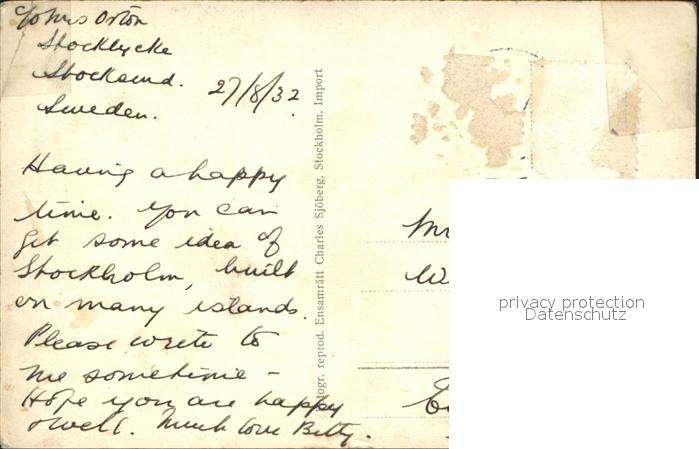 Johns Orton
Stocklycke
Stocksund.
Sweden.
27/8/32
Having a happy
time. You can
get some idea of
Stockholm, built
on many islands.
Please write to
me sometime -
Hope you are happy
& well. Much love Betty.
togr. reprod. Ensamrätt Charles Sjöberg, Stockholm. Import
privacy protection
Datenschutz